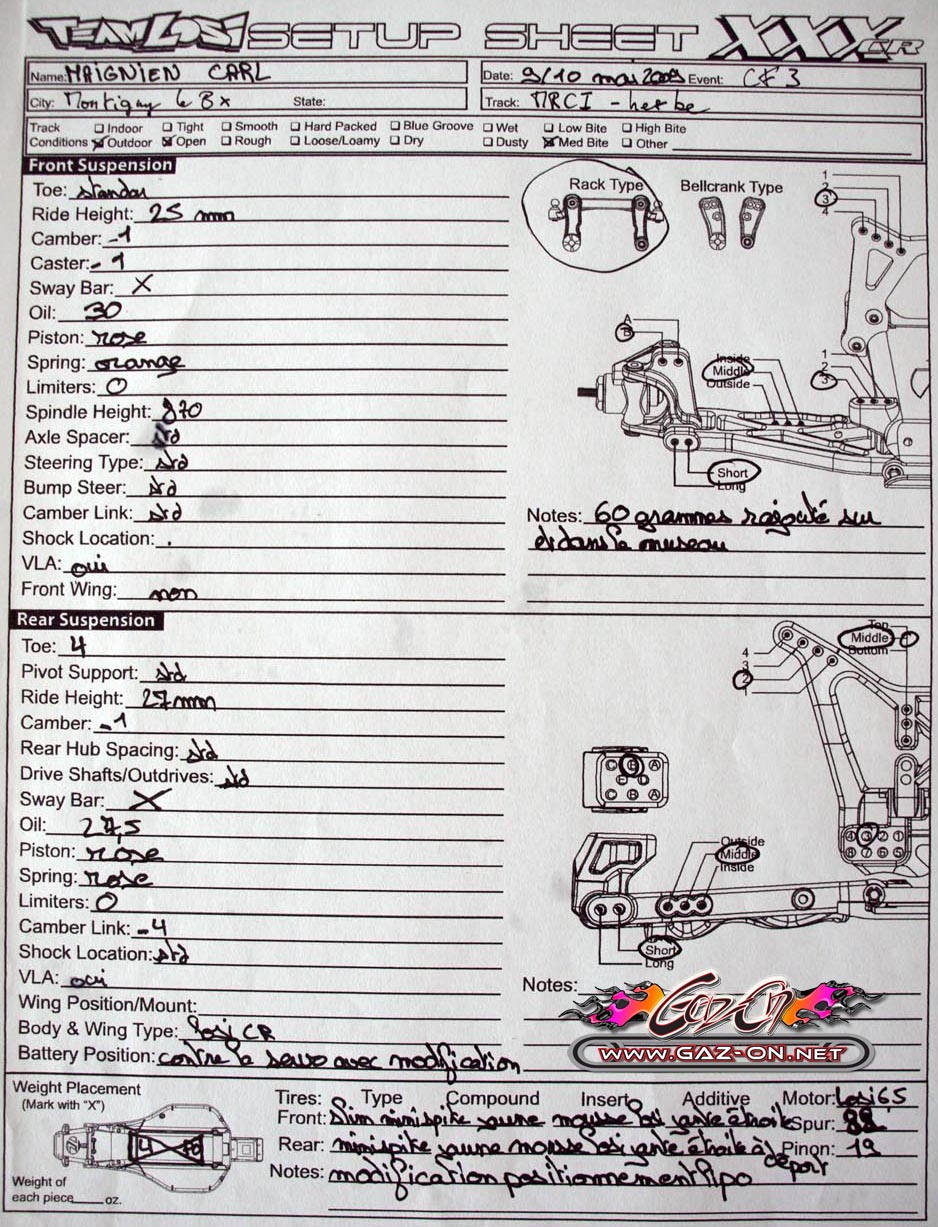 TEAM LOSI SETUP SHEET XXX CR
Name: MAIGNIEN CARL
Date: 9/10 mai 2009 Event: CF 3
City: Montigny le Bx State:
Track: MRCI - herbe
Track Conditions
Indoor Tight Smooth Hard Packed Blue Groove Wet Low Bite High Bite
Outdoor Open Rough Loose/Loamy Dry Dusty Med Bite Other
Front Suspension
Toe: standar
Ride Height: 25 mm
Camber: -1
Caster: -1
Sway Bar: X
Oil: 30
Piston: rose
Spring: orange
Limiters: 0
Spindle Height: 270
Axle Spacer: std
Steering Type: std
Bump Steer: std
Camber Link: std
Shock Location: .
VLA: oui
Front Wing: non
Rack Type Bellcrank Type
1
2
3
4
A
B
Inside
Middle
Outside
1
2
3
Short
Long
Notes: 60 grammes rajouté sur
et dans le museau
Rear Suspension
Toe: 4
Pivot Support: std
Ride Height: 27 mm
Camber: -1
Rear Hub Spacing: std
Drive Shafts/Outdrives: std
Sway Bar: X
Oil: 27,5
Piston: rose
Spring: rose
Limiters: 0
Camber Link: -4
Shock Location: std
VLA: oui
Wing Position/Mount:
Body & Wing Type: losi CR
Battery Position: contre le servo avec modification
Top
Middle
Bottom
4
3
2
1
C B A
C B A
4 3 2 1
8 7 6 5
Outside
Middle
Inside
Short
Long
Notes:
Gaz On
WWW.GAZ-ON.NET
Weight Placement
(Mark with "X")
Weight of
each piece oz.
Tires: Type Compound Insert Additive Motor: Losi 65
Front: Slim minispike jaune mousse losi jante étoile Spur: 88
Rear: minispike jaune mousse losi jante étoile à déport Pinon: 19
Notes: modification positionnement lipo